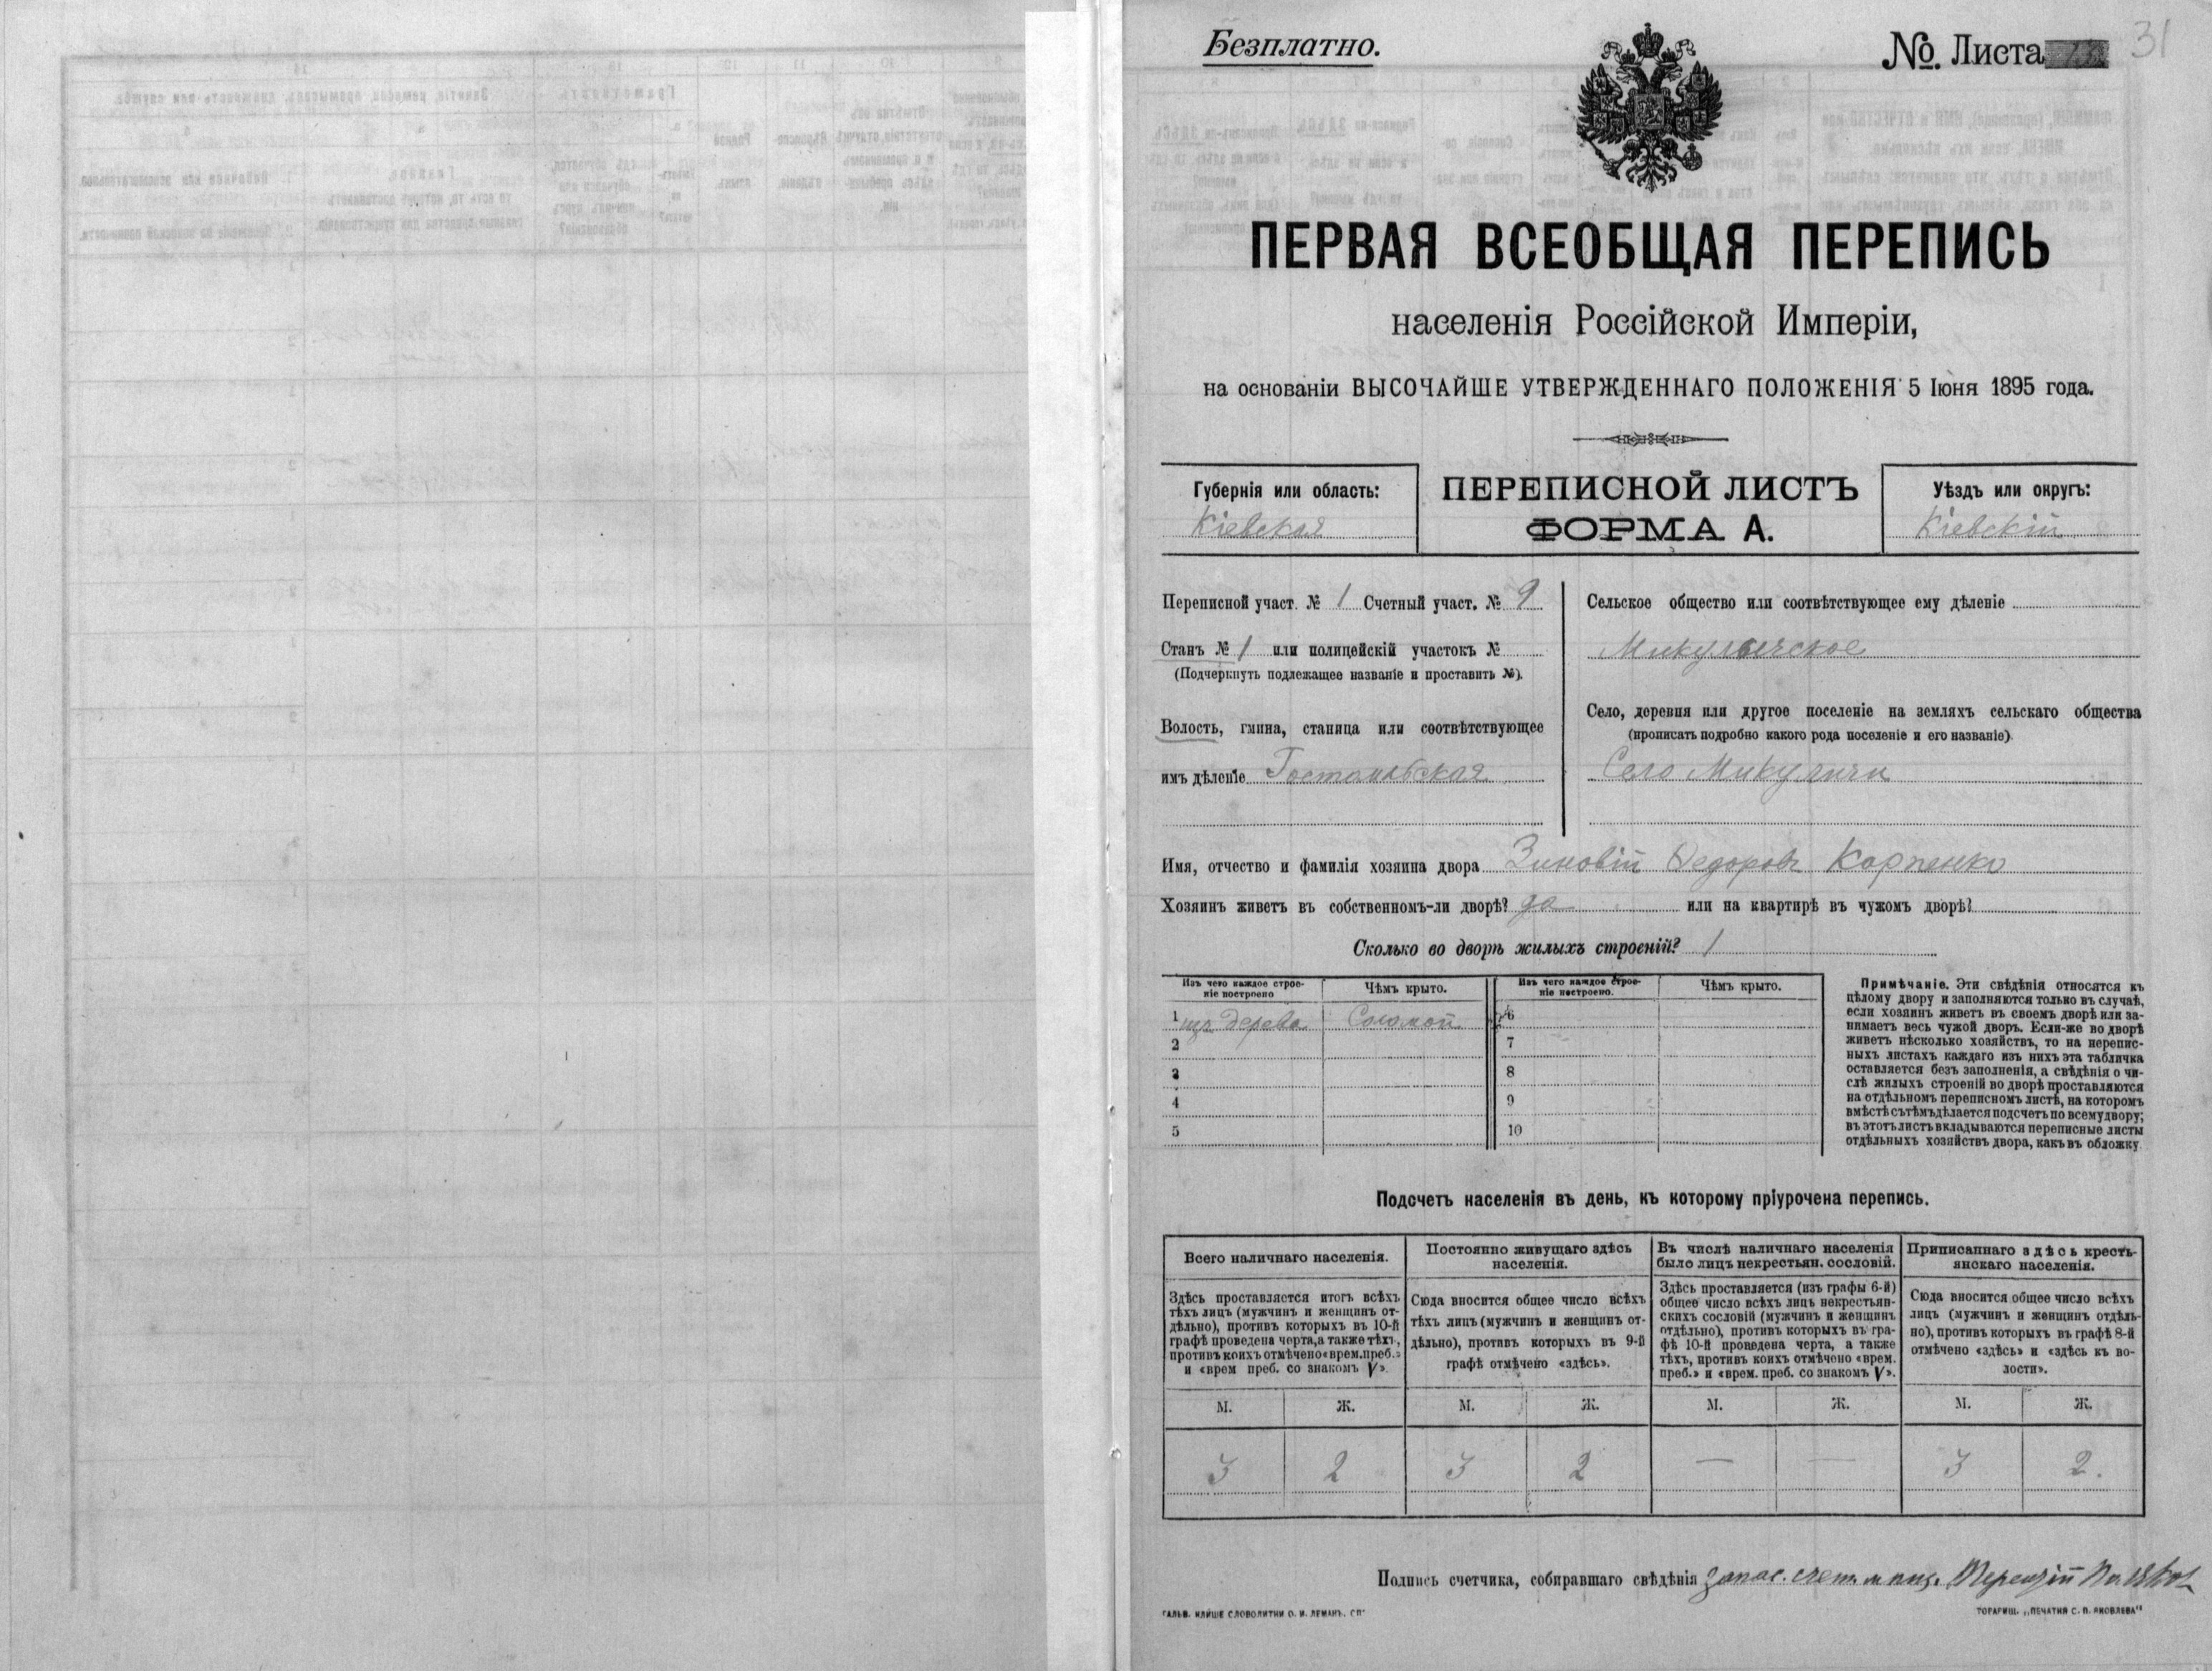 Безплатно.
№. Листа
31
ПЕРВАЯ ВСЕОБЩАЯ ПЕРЕПИСЬ
населенія Россійской Имперіи,
на основаніи ВЫСОЧАЙШЕ УТВЕРЖДЕННАГО ПОЛОЖЕНІЯ 5 Іюня 1895 года.
Губернія или область:
Кіевская
ПЕРЕПИСНОЙ ЛИСТЪ
ФОРМА А.
Уѣздъ или округъ:
Кіевскій
Переписной участ. № 1 Счетный участ. № 9
Станъ № 1 или полицейскій участокъ №
(Подчеркнуть подлежащее названіе и проставить №).
Волость, гмина, станица или соотвѣтствующее
имъ дѣленіе Гостомльская
Сельское общество или соотвѣтствующее ему дѣленіе
Микуличское
Село, деревня или другое поселеніе на земляхъ сельскаго общества
(прописать подробно какого рода поселеніе и его названіе)
Село Микуличи
Имя, отчество и фамилія хозяина двора Зиновій Федоровъ Карпенко
Хозяинъ живетъ въ собственномъ-ли дворѣ? да или на квартирѣ въ чужомъ дворѣ?
Сколько во дворѣ жилыхъ строеній? 1
Изъ чего каждое строе-
ніе построено
Чѣмъ крыто.
Изъ чего каждое строе-
ніе построено.
Чѣмъ крыто.
1 изъ дерева Соломой 6
2 7
3 8
4 9
5 10
Примѣчаніе. Эти свѣдѣнія относятся къ
цѣлому двору и заполняются только въ случаѣ,
если хозяинъ живетъ въ своемъ дворѣ или за-
нимаетъ весь чужой дворъ. Если-же во дворѣ
живетъ нѣсколько хозяйствъ, то на перепис-
ныхъ листахъ каждаго изъ нихъ эта табличка
оставляется безъ заполненія, а свѣдѣнія о чи-
слѣ жилыхъ строеній во дворѣ проставляются
на отдѣльномъ переписномъ листѣ, на которомъ
вмѣстѣ съ тѣмъ дѣлается подсчетъ по всему двору;
въ этотъ листъ вкладываются переписные листы
отдѣльныхъ хозяйствъ двора, какъ въ обложку.
Подсчетъ населенія въ день, къ которому пріурочена перепись.
Всего наличнаго населенія.
Здѣсь проставляется итогъ всѣхъ
тѣхъ лицъ (мужчинъ и женщинъ от-
дѣльно), противъ которыхъ въ 10-й
графѣ проведена черта, а также тѣхъ,
противъ коихъ отмѣчено «врем. преб.»
и «врем преб. со знакомъ V».
Постоянно живущаго здѣсь
населенія.
Сюда вносится общее число всѣхъ
тѣхъ лицъ (мужчинъ и женщинъ от-
дѣльно), противъ которыхъ въ 9-й
графѣ отмѣчено «здѣсь».
Въ числѣ наличнаго населенія
было лицъ некрестьян. сословій.
Здѣсь проставляется (изъ графы 6-й)
общее число всѣхъ лицъ некрестьян-
скихъ сословій (мужчинъ и женщинъ
отдѣльно), противъ которыхъ въ гра-
фѣ 10-й проведена черта, а также
тѣхъ, противъ коихъ отмѣчено «врем.
преб.» и «врем. преб. со знакомъ V».
Приписаннаго здѣсь кресть-
янскаго населенія.
Сюда вносится общее число всѣхъ
лицъ (мужчинъ и женщинъ отдѣль-
но), противъ которыхъ въ графѣ 8-й
отмѣчено «здѣсь» и «здѣсь къ во-
лости».
М. Ж. М. Ж. М. Ж. М. Ж.
3 2 3 2 — — 3 2.
Подпись счетчика, собиравшаго свѣдѣнія запас. счет. Терентій
ТОВАРИЩ. „ПЕЧАТНЯ С. П. ЯКОВЛЕВА"